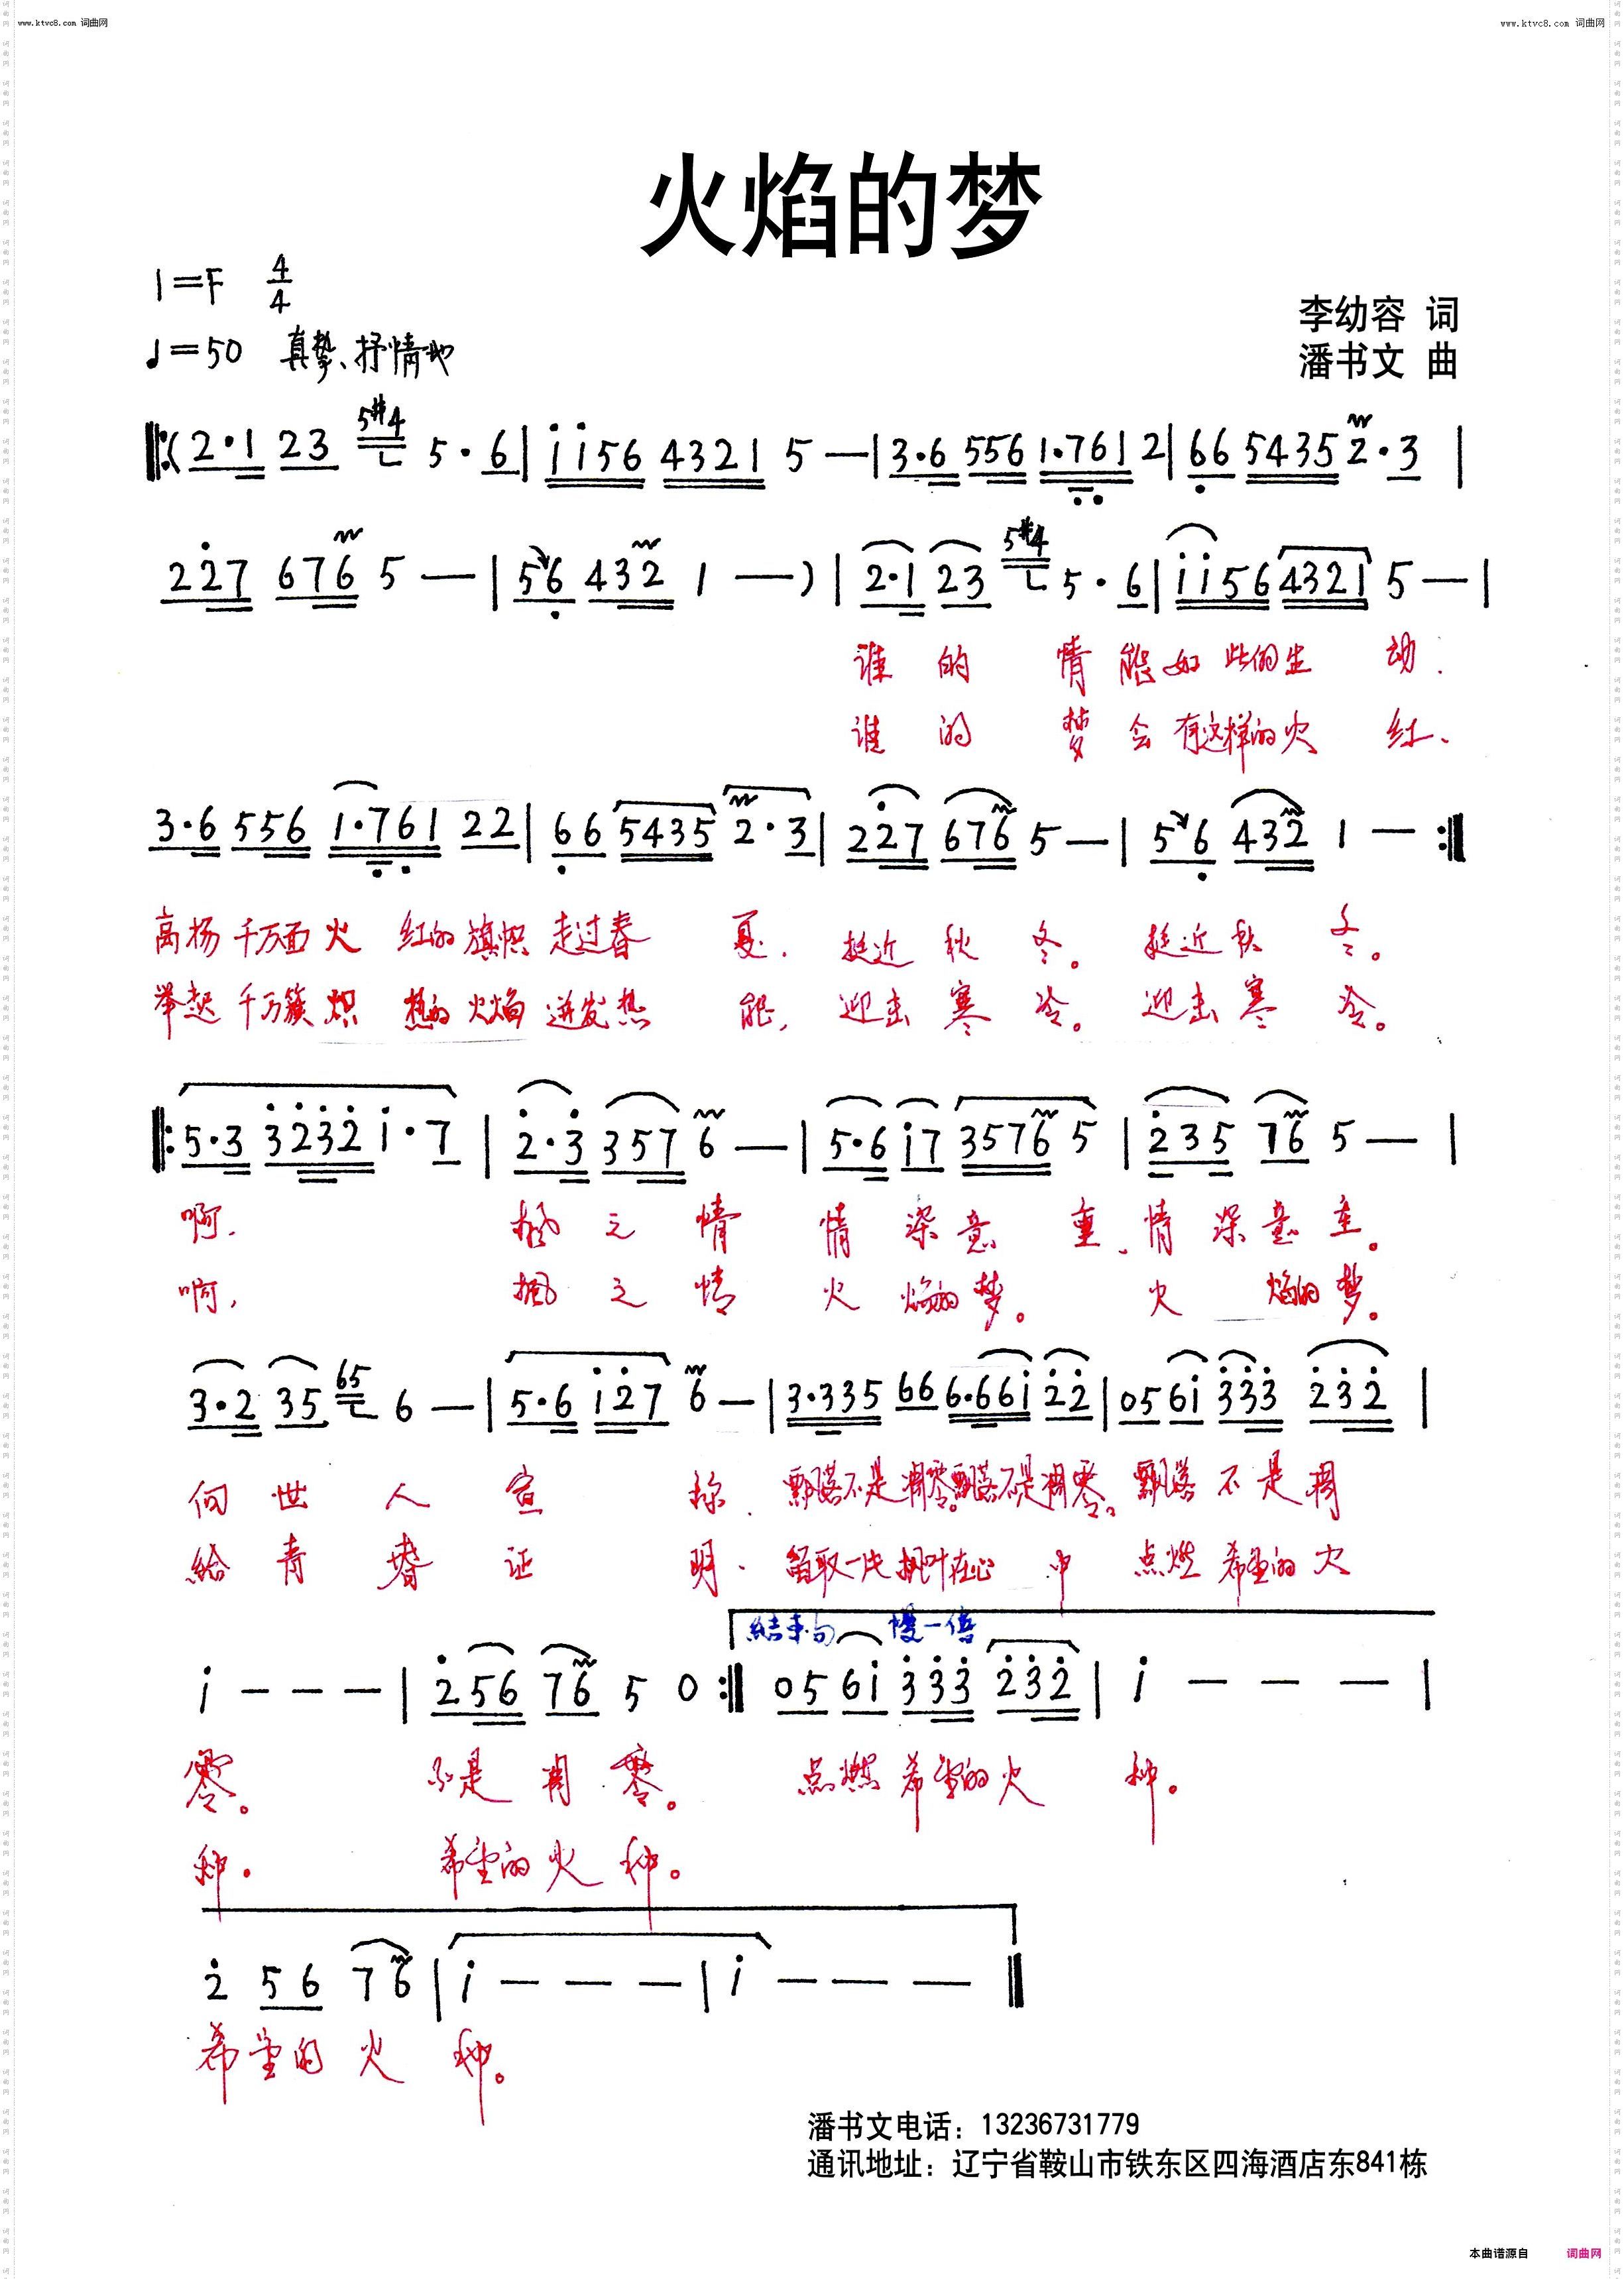 www.ktvc8.com 词曲网
www.ktvc8.com 词曲网
火焰的梦
1=F 4/4
♩=50 真挚、抒情地
李幼容 词
潘书文 曲
(2·1 23 5#4 5·6 | i i 5 6 4321 5 — | 3·6 556 1·761 2 | 66 5435 2·3 |
2 2 7 6 7 6 5 — | 5 6 4 3 2 1 — ) | 2·1 23 5#4 5·6 | i i 5 6 4321 5 — |
谁 的 情 能如 此的生 动.
谁 的 梦 会 有这样的火 红、
3·6 556 1·761 22 | 66 5435 2·3 | 2 2 7 6 7 6 5 — | 5 6 4 3 2 1 — :
高扬 千万面火 红的旗帜 走过春 夏. 挺近 秋 冬。 挺近 秋 冬。
举起 千万簇炽 热的火焰 迸发热 能, 迎击 寒 冷。 迎击 寒 冷。
: 5·3 3232 i·7 | 2·3 357 6 — | 5·6 i7 3576 5 | 235 76 5 — |
啊. 枫 之 情 情 深 意 重、情 深 意 重。
啊, 枫 之 情 火 焰的梦。 火 焰的梦。
3·2 35 65 6 — | 5·6 i27 6 — | 3·335 66 6·66i 22 | 056i 333 232 |
向 世 人 宣 称. 飘落不是凋零。飘落不是凋零。飘落 不 是 凋
给 青 春 证 明. 留取一片枫叶在心 中 点燃 希望的火
结束句 慢一倍
i — — — | 256 76 5 0 : 056i 333 232 | i — — — |
零。 不是 凋 零。 点燃 希望的火 种。
种. 希望的 火 种。
2 56 76 | i — — — | i — — —
希望的 火 种。
潘书文电话：13236731779
通讯地址：辽宁省鞍山市铁东区四海酒店东841栋
本曲谱源自 词曲网